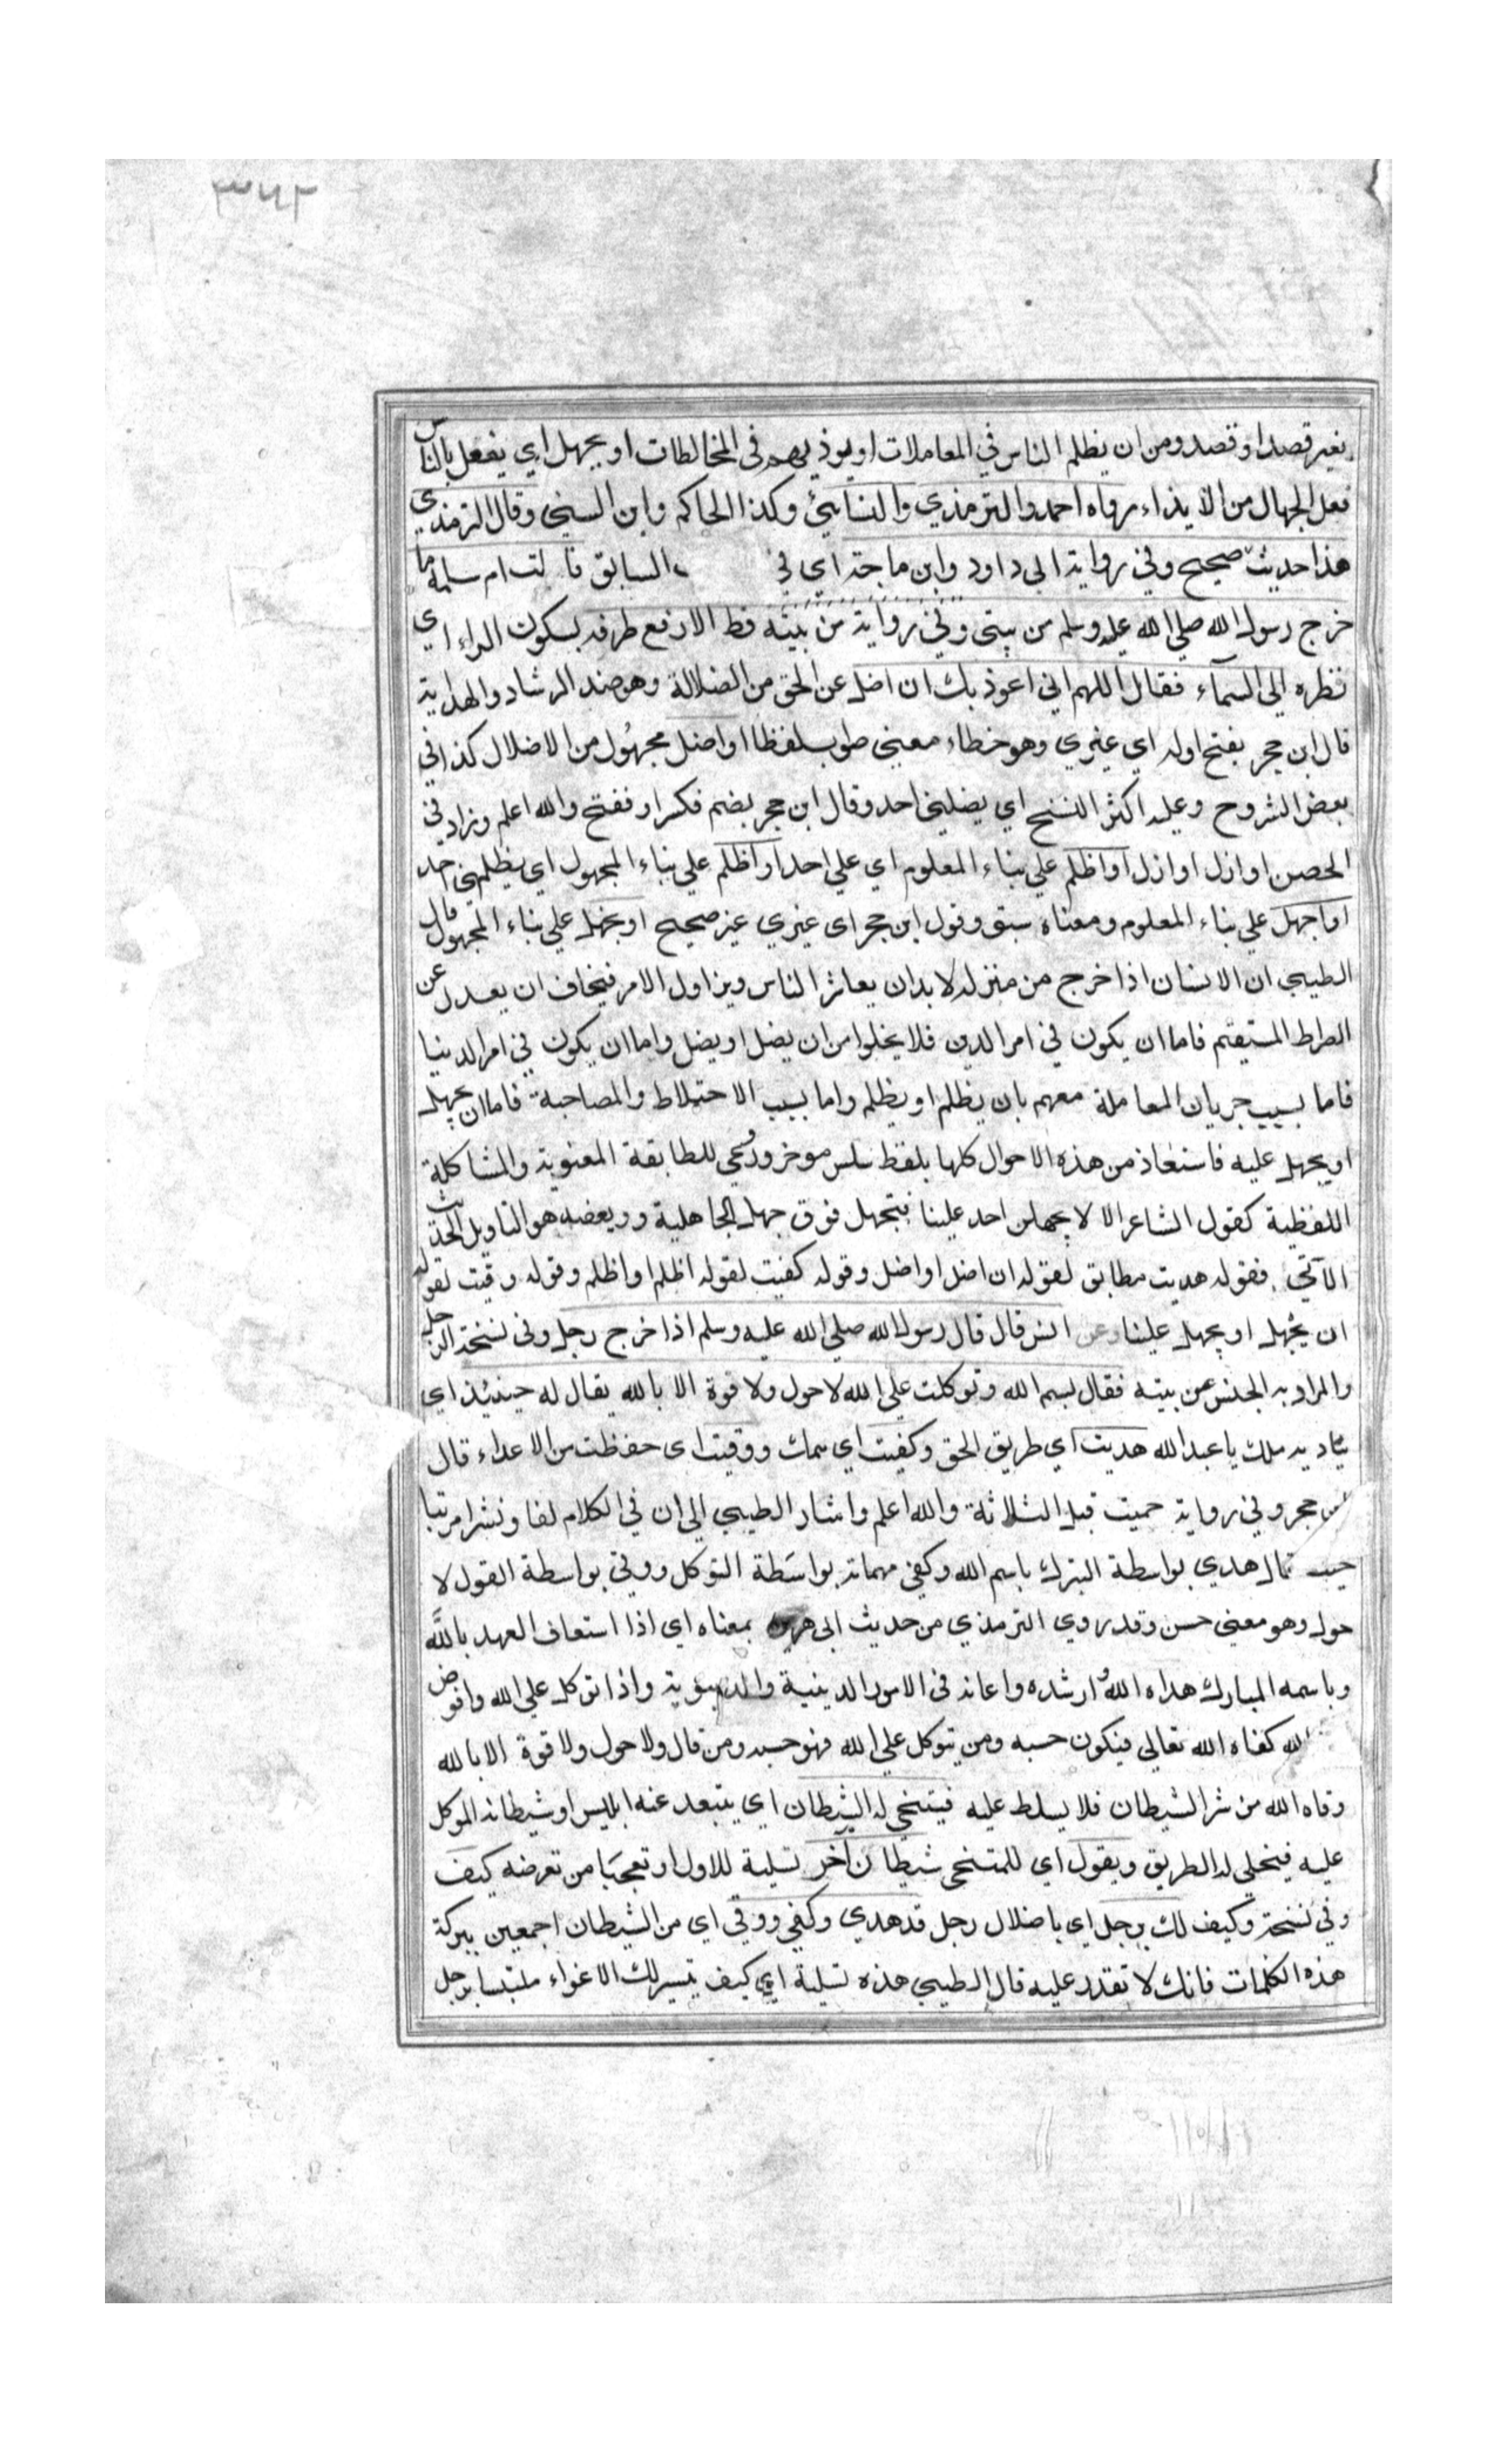 ٣٤٢
بغير قصد او قصد ومن ان يظلم الناس في المعاملات او يوذيهم في المخالطات او يجهل اي يفعل بالناس
فعل الجهال من الايذاء رواه احمد والترمذي والنسائي وكذا الحاكم وابن السني وقال الترمذي
هذا حديث صحيح وفي رواية ابي داود وابن ماجة اي في السابق قالت ام سلمة ما
خرج رسول الله صلي الله عليه وسلم من بيتي وفي رواية من بيته قط الا رفع طرفه بسكون الراء اي
نظره الي السمآء فقال اللهم اني اعوذ بك ان اضل عن الحق من الضلالة وهو ضد الرشاد والهداية
قال ابن حجر بفتح اوله اي غيري وهو خطاء معيني صوب لفظا او اضل مجهُول من الاضلال كذا في
بعض الشروح وعليه اكثر النسخ اي يضلني احد وقال ابن حجر بضم فكسر او ففتح والله اعلم وزاد في
الحصن او ازل او ازل او اظلم علي بناء المعلوم اي علي احد او اظلم علي بناء المجهول اي يظلمني احد
او اجهل علي بناء المعلوم ومعناه سبق وقول ابن حجر اي غيري غير صحيح او يجهل علي بناء المجهول قال
الطيبي ان الانسان اذا خرج من منزله لا بد ان يعاشر الناس ويزاول الامر فيخاف ان يعدل عن
الصراط المستقيم فاما ان يكون في امر الدين فلا يخلوا من ان يضل او يضل واما ان يكون في امر الدينيا
فاما بسبب جريان المعاملة معهم بان يظلم او يظلم واما بسبب الاختلاط والمصاحبة فاما ان يجهل
او يجهل عليه فاستعاذ من هذه الاحوال كلها بلفظ سلس موخر وروعي للطابقة المعنوية والمشاكلة
اللفظية كقول الشاعر الا لا يجهلن احد علينا فتجهل فوق جهل الجاهلية وويعضه هو التاويل الحديث
الآتي فقوله هديت مطابق لقوله ان اضل او اضل وقوله كفيت لقوله اظلم او اظلم وقوله وقيت لقوله
ان يجُهل او يجهل علينا وعن انس قال قال رسول الله صلي الله عليه وسلم اذا خرج رجل وفي نسخة الرجل
والمراد به الجنس من بيته فقال بسم الله وتوكلت علي الله لا حول ولا قوة الا بالله يقال له حينيذ اي
يناديه ملك يا عبد الله هديت اي طريق الحق وكفيت اي همك ووقيت اي حفظت من الاعداء قال
ابن حجر وفي رواية حميت قبل الثلاثة والله اعلم واشار الطيبي الي ان في الكلام لفا ونشرا مرتبا
حيث قال هدي بواسطة التبرك باسم الله وكفي مهماته بواسَطة التوكل ووقي بواسطة القول لا
حول وهو معني حسن وقد روي الترمذي من حديث ابي هريرة بمعناه اي اذا استعاف العهد بالله
وباسمه المبارك هداه اللهُ ارشده واعانه في الامور الدينية والدنيوية واذا توكل علي الله وافوض
الله كفاه الله تعالي فيكون حسبه ومن يتوكل علي الله فهو حسبه ومن قال ولا حول ولا قوة الا بالله
وقاه الله من شر الشيطان فلا يسلط عليه فيتنحي له الشيطان اي يتبعد عنه ابليس او شيطانه الموكل
عليه فيخلي له الطريق ويقول اي للمتنحي شيطان آخر تسلية للاول او تعجبَا من تعرضه كيف
وفي نسخة وكيف لك برجل اي باضلال رجل قد هدي وكفي ووقي اي من الشيطان اجمعين ببركة
هذه الكلمات فانك لا تقدر عليه قال الطيبي هذه تسلية اي كيف يتيسر لك الاغواء ملتبسا برجل